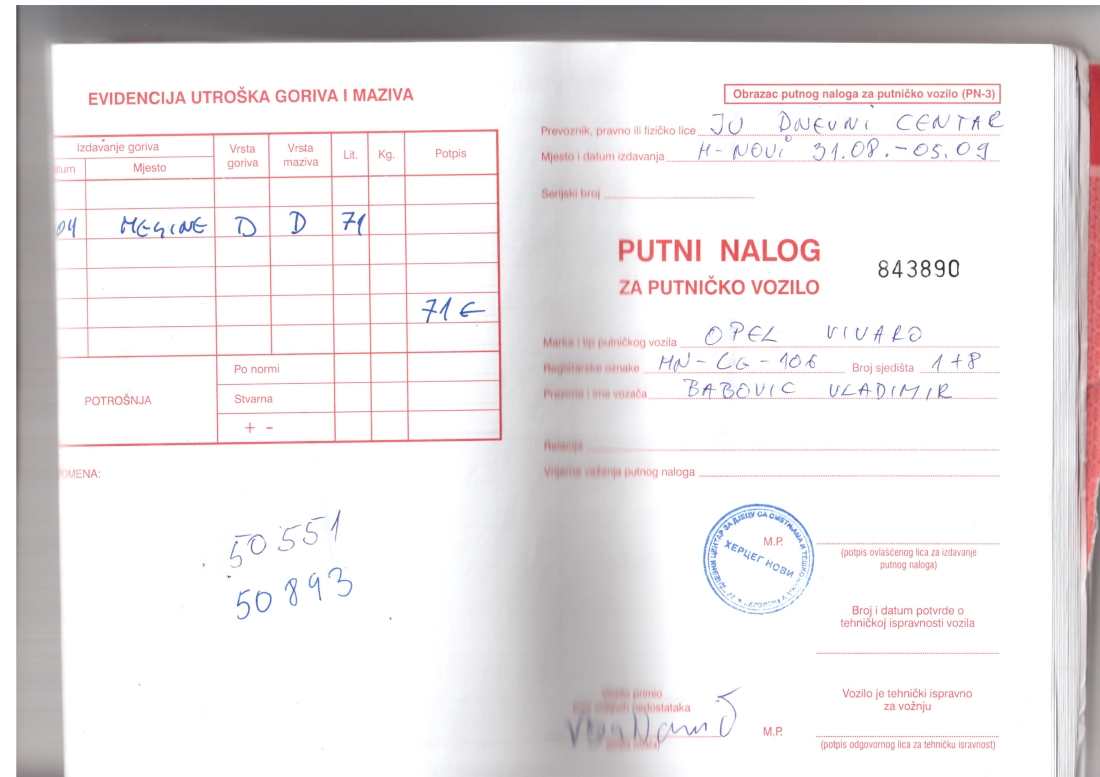 EVIDENCIJA UTROŠKA GORIVA I MAZIVA
Izdavanje goriva
Mjesto
Vrsta goriva
Vrsta maziva
Lit.
Kg.
Potpis
04 D D 71
71 €
POTROŠNJA
Po normi
Stvarna
+ -
OMENA:
50551
50893
Obrazac putnog naloga za putničko vozilo (PN-3)
Prevoznik, pravno ili fizičko lice JU DNEVNI CENTAR
Mjesto i datum izdavanja H-NOVI 31.08.-05.09
Serijski broj
PUTNI NALOG
843890
ZA PUTNIČKO VOZILO
Marka i tip putničkog vozila OPEL VIVARO
Registarske oznake HN-CG-106 Broj sjedišta 1+8
Prezime i ime vozača BABOVIC VLADIMIR
Relacija
Vrijeme važenja putnog naloga
ХЕРЦЕГ НОВИ
M.P.
(potpis ovlašćenog lica za izdavanje
putnog naloga)
Broj i datum potvrde o
tehničkoj ispravnosti vozila
Vozilo primio
bez vidljivih nedostataka
Vozilo je tehnički ispravno
za vožnju
M.P.
(potpis odgovornog lica za tehničku isravnost)